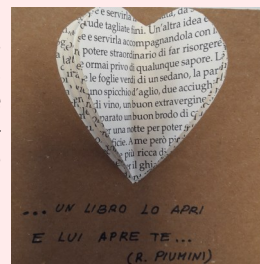 e e servirla
ude tagliate fini. Un'altra idea
e e servirla accompagnandola con
potere straordinario di far risorgere
ormai privo di qualunque sapore.
e le foglie verdi di un sedano, la
uno spicchio d'aglio, due acciugh
di vino, un buon extravergine
parato un buon brodo di
r una notte per poter
ficie. A me però pi
più ricca d
il ghi
... UN LIBRO LO APRI
E LUI APRE TE...
(R. PIUMINI)